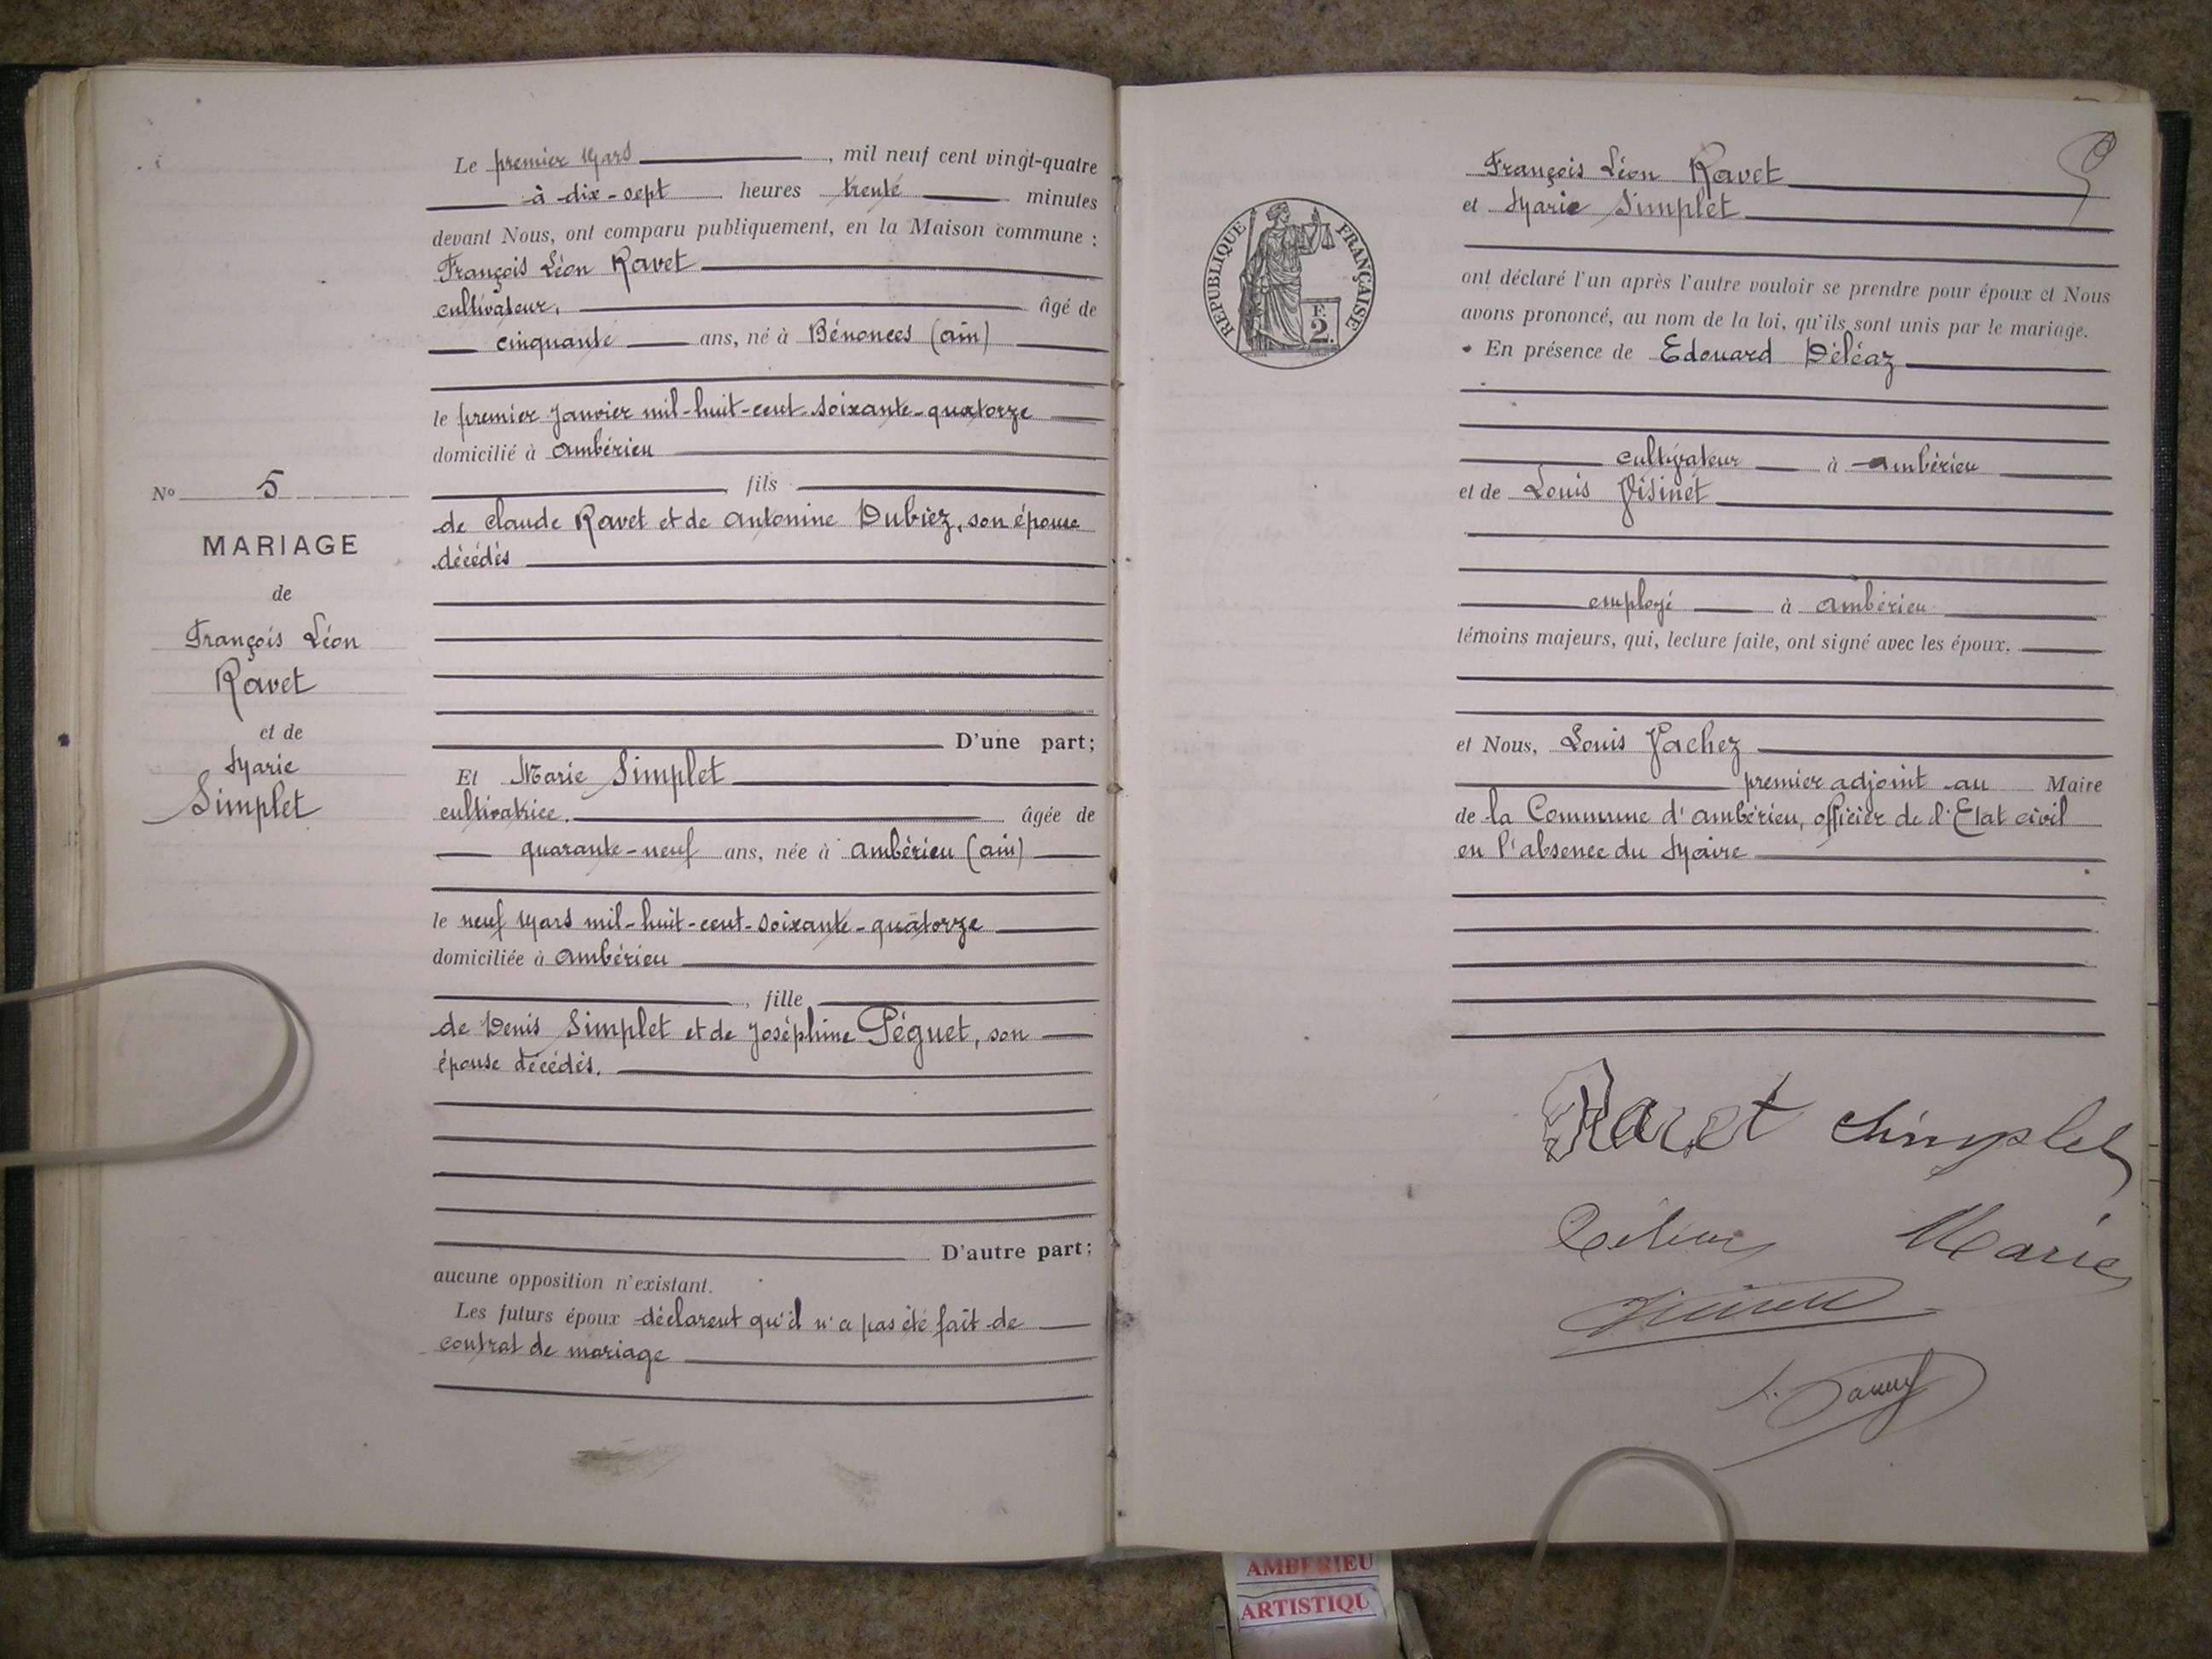 Le premier Mars, mil neuf cent vingt-quatre
à dix-sept heures trente minutes
devant Nous, ont comparu publiquement, en la Maison commune :
François Léon Ravet
cultivateur, âgé de
cinquante ans, né à Bénonces (ain)
le premier Janvier mil-huit-cent-soixante-quatorze
domicilié à ambérieu
fils
de claude Ravet et de antonine Dubiez, son épouse
décédés
No 5
MARIAGE
de
François Léon
Ravet
et de
Marie
Simplet
D'une part;
Et Marie Simplet
cultivatrice. âgée de
quarante-neuf ans, née à ambérieu (ain)
le neuf Mars mil-huit-cent-soixante-quatorze
domiciliée à ambérieu
, fille
de Denis Simplet et de Joséphine Péguet, son
épouse décédés.
D'autre part;
aucune opposition n'existant.
Les futurs époux déclarent qu'il n'a pas été fait de
contrat de mariage
François Léon Ravet
et Marie Simplet
REPUBLIQUE FRANÇAISE
F.
2.
ont déclaré l'un après l'autre vouloir se prendre pour époux et Nous
avons prononcé, au nom de la loi, qu'ils sont unis par le mariage.
En présence de Edouard Déléaz
cultivateur à ambérieu
et de Louis Visinet
employé à ambérieu
témoins majeurs, qui, lecture faite, ont signé avec les époux.
et Nous, Louis Vachez
premier adjoint au Maire
de la Commune d'ambérieu, officier de l'Etat civil
en l'absence du Maire
Ravet Simplet
Marie
AMBERIEU
ARTISTIQU